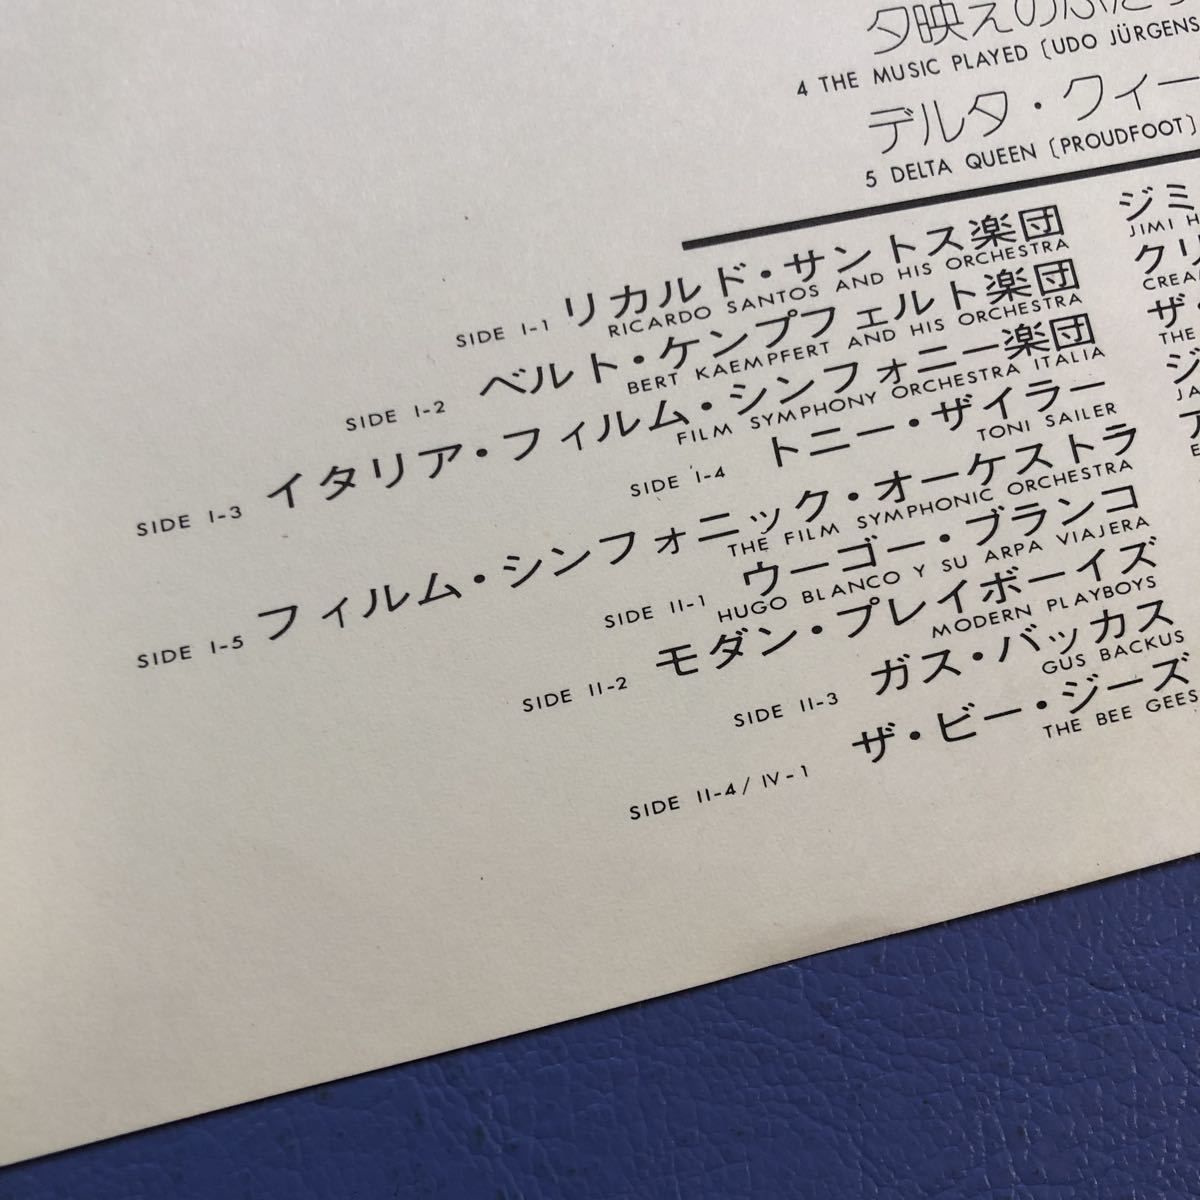 夕映えのふた
4 THE MUSIC PLAYED [UDO JÜRGENS
デルタ・クィー
5 DELTA QUEEN [PROUDFOOT]
SIDE I-1 リカルド・サントス楽団
RICARDO SANTOS AND HIS ORCHESTRA
SIDE I-2 ベルト・ケンプフェルト楽団
BERT KAEMPFERT AND HIS ORCHESTRA
SIDE I-3 イタリア・フィルム・シンフォニー楽団
FILM SYMPHONY ORCHESTRA ITALIA
SIDE I-4 トニー・ザイラー
TONI SAILER
SIDE I-5 フィルム・シンフォニック・オーケストラ
THE FILM SYMPHONIC ORCHESTRA
SIDE II-1 ウーゴー・ブランコ
HUGO BLANCO Y SU ARPA VIAJERA
SIDE II-2 モダン・プレイボーイズ
MODERN PLAYBOYS
SIDE II-3 ガス・バッカス
GUS BACKUS
SIDE II-4/IV-1 ザ・ビー・ジーズ
THE BEE GEES
ジミ
JIMI H
クリ
CREA
ザ・
THE
ジ
JA